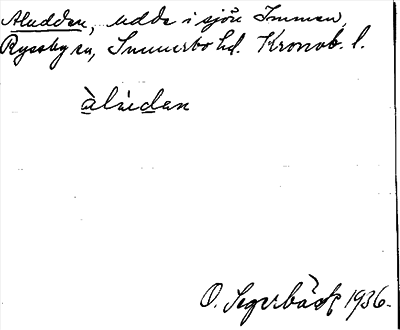 Aludden, udde i sjön Immen,
Ryssby sn, Sunnerbo hd. Kronob. l.
àlùdan
O. Segerbäck 1936.